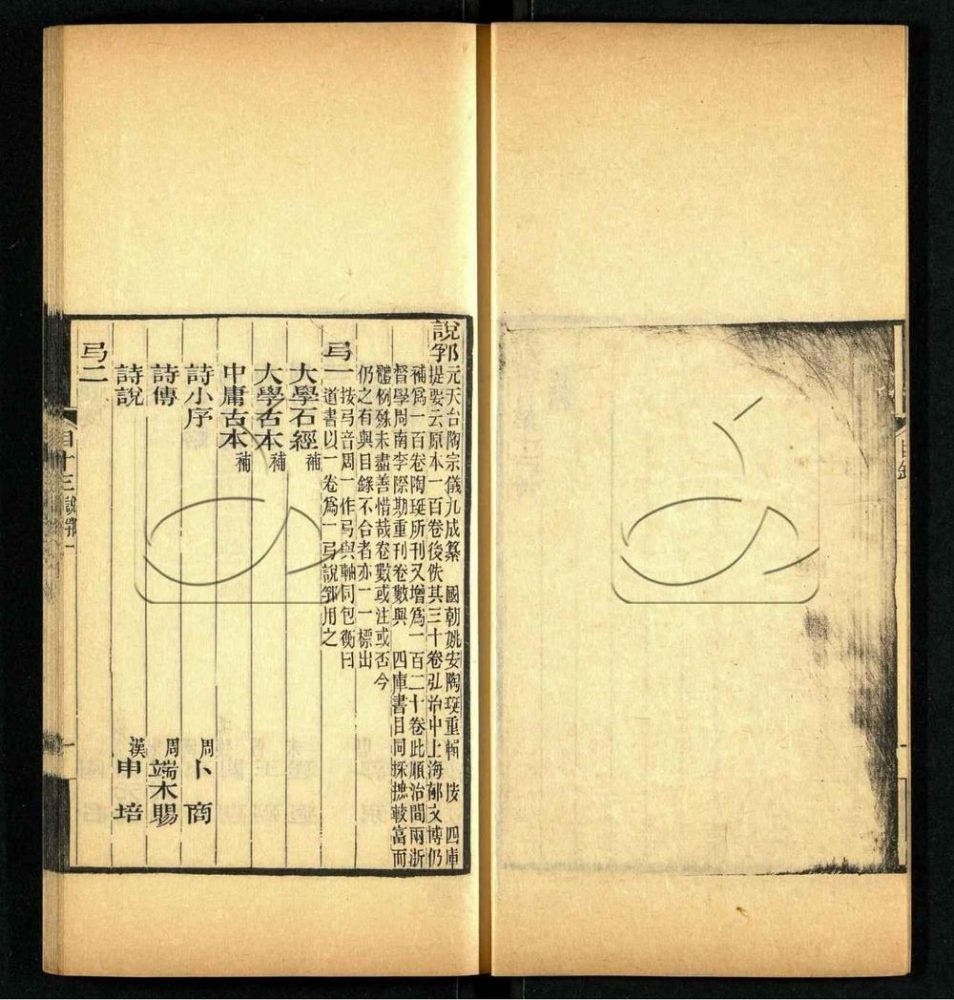 說郛
元天台陶宗儀九成纂　國朝姚安陶珽重輯　按　四庫
提要云原本一百卷後佚其三十卷弘治中上海郁文博仍
補爲一百卷陶珽所刊又增爲一百二十卷此順治間兩浙
督學周南李際期重刊卷數與　四庫書目同採摭較富而
體例殊未盡善惜哉卷數或注或否今
仍之有與目錄不合者亦一一標出
弓一
按弓音周一作弓與軸同包衡曰
道書以一卷爲一弓說郛用之
大學石經補
大學古本補
中庸古本補
詩小序　周卜商
詩傳　周端木賜
詩說　漢申培
弓二
目十三說郛一
一
目錄